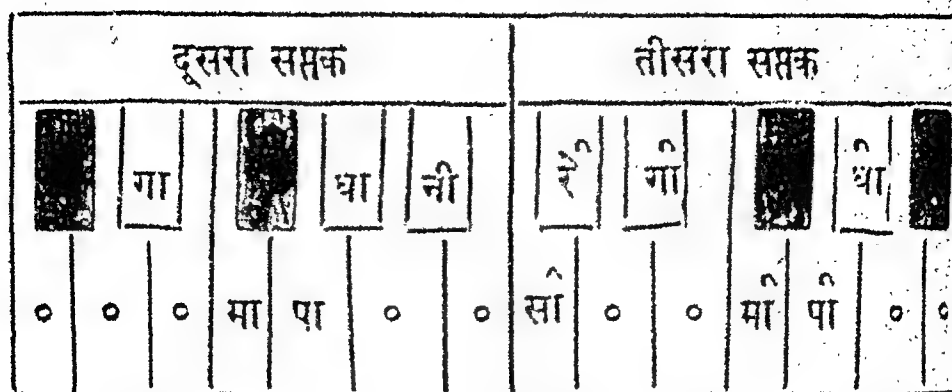 दूसरा सप्तक तीसरा सप्तक
गा धा नी रे॑ गा॑ धा॑
० ० ० मा पा ० ० सा॑ ० ० मा॑ पा॑ ० ०